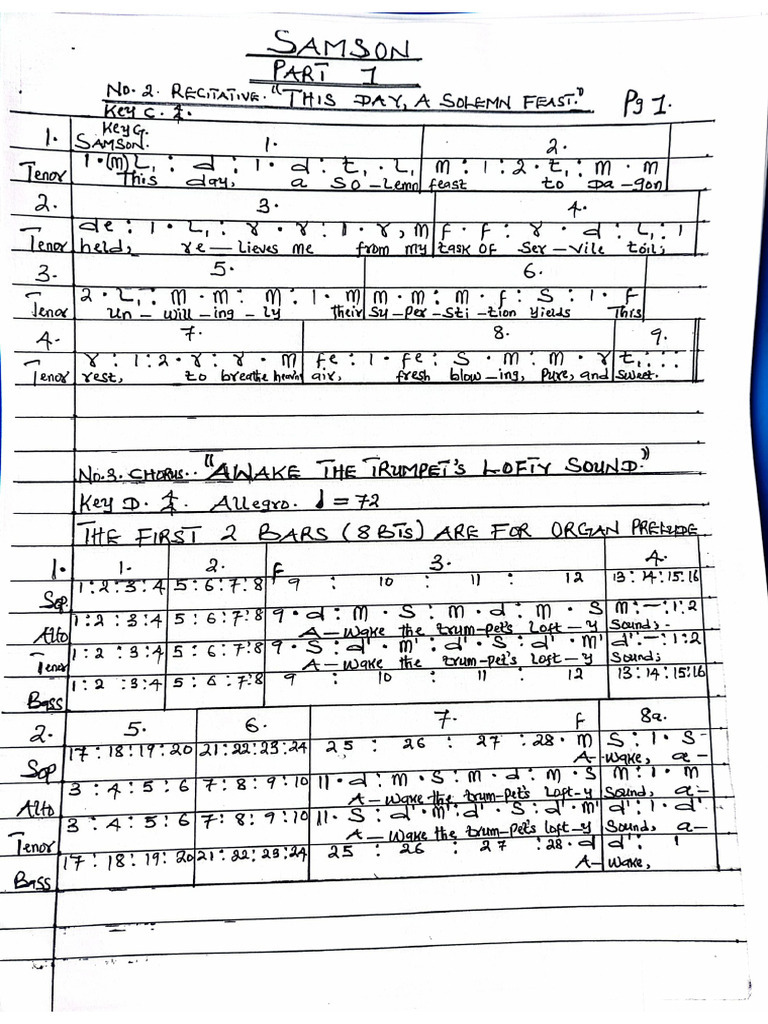 SAMSON
PART 1
No. 2. RECITATIVE. "THIS DAY, A SOLEMN FEAST." Pg 1.
Key C. 4/4.
Key G.
1. SAMSON. 1. 2.
Tenor 1 . (m) L, : d : 1 . d : t, . L, m : 1 : 2 . t, : m . m
This day, a So-lemn feast to Da-gon
2. 3. 4.
Tenor de : 1 . L, : r . r : 1 . r, m f . f : r . d : L, : 1
held, re-lieves me from my task of Ser-vile toil;
3. 5. 6.
Tenor 2 . L, : m . m : m : 1 . m m . m : m . f : S : 1 . f
un-will-ing-ly their Su-Per-Sti-tion yields This
4. 7. 8. 9.
Tenor r : 1 : 2 . r : r . m fe : 1 . fe : S . m : m . r t, : : :
rest, to breathe heavn air, fresh blow-ing, Pure, and Sweet.
No. 3. CHORUS.. "AWAKE THE TRUMPET'S LOFTY SOUND."
Key D. 4/4. Allegro. ♩ = 72
THE FIRST 2 BARS (8 BTS) ARE FOR ORGAN PRELUDE
1. 1. 2. f 3. 4.
Sop. 1 : 2 : 3 : 4 5 : 6 : 7 : 8 9 : 10 : 11 : 12 13 : 14 : 15 : 16
Alto 1 : 2 : 3 : 4 5 : 6 : 7 : 8 9 . d : m . S : m . d : m . S m : - : 1 : 2
A-Wake the trum-pet's Loft-y Sound, -
Tenor 1 : 2 : 3 : 4 5 : 6 : 7 : 8 9 . S : d' . m' : d' . S : d' . m' d' : - : 1 : 2
A-Wake the trum-pet's Loft-y Sound;
Bass 1 : 2 : 3 : 4 5 : 6 : 7 : 8 9 : 10 : 11 : 12 13 : 14 : 15 : 16
2. 5. 6. 7. f 8a.
Sop 17 : 18 : 19 : 20 21 : 22 : 23 : 24 25 : 26 : 27 : 28 . m S : 1 . S
A-Wake, a-
Alto 3 : 4 : 5 : 6 7 : 8 : 9 : 10 11 . d : m . S : m . d : m . S m : 1 . m
A-Wake the trum-pet's Loft-y Sound, a-
Tenor 3 : 4 : 5 : 6 7 : 8 : 9 : 10 11 . S : d' . m' : d' . S : d' . m' d' : 1 . d'
A-Wake the trum-pet's loft-y Sound, a-
Bass 17 : 18 : 19 : 20 21 : 22 : 23 : 24 25 : 26 : 27 : 28 . d d' : 1
A-Wake,